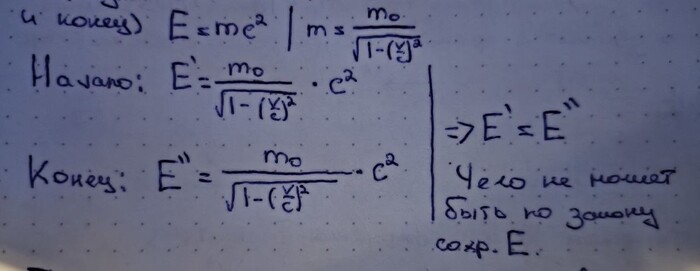 и конец) E = mc² | m = m₀/√(1-(v/c)²)
Начало: E' = m₀/√(1-(v/c)²) · c²
Конец: E'' = m₀/√(1-(v/c)²) · c²
=> E' = E''
Чего не может
быть по закону
сохр. E.